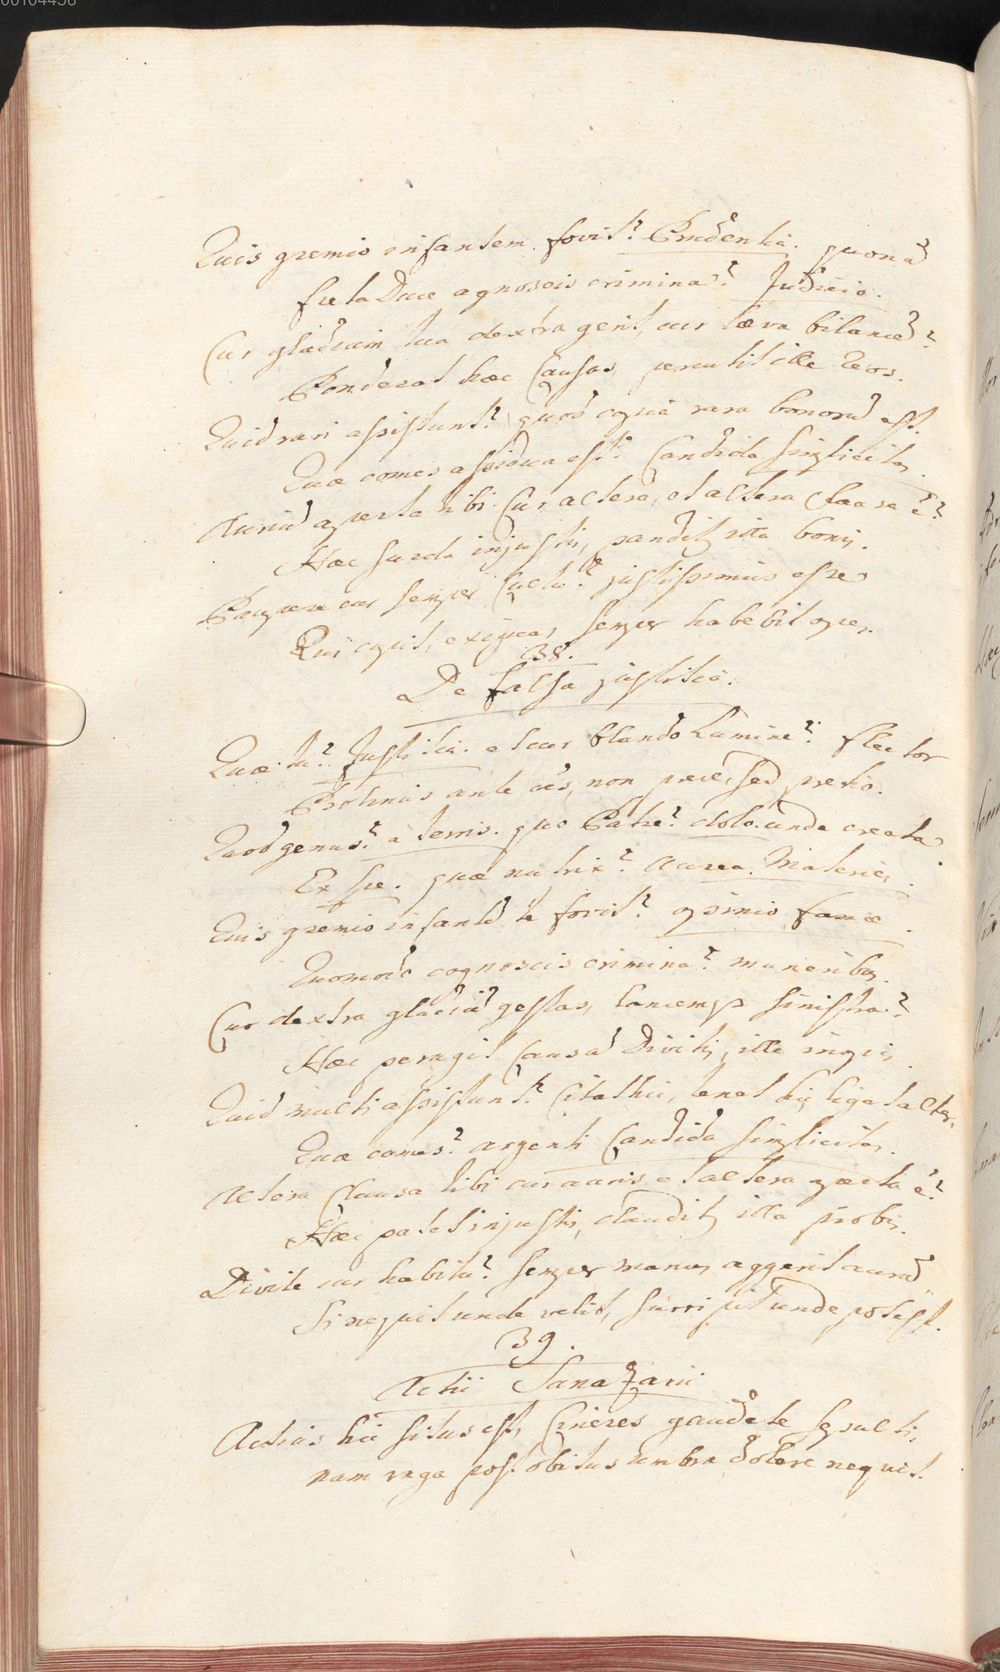 00104456
Quis gremio infantem fovit? Prudentia. quonā
freta Duce agnoscis crimina? Judicio.
Cur gladium tua dextra gerit, cur læva bilancē?
Ponderat hæc Causas, percutit ille Reos.
Quid rari assistunt? quod copia rara bonorū est.
Quæ comes assidua est? Candida Simplicitas.
Auriū aperta tibi Cur altera, et altera Clausa ē?
Hæc surda injustis, panditur illa bonis.
Paupere cur semper Cultu? justissimus esse
Qui cupit, exiguas semper habebit opes.
38.
De falsa justitia.
Quæ tu? Justitia. et cur blando Lumine? flector
Protinus ante oēs, non prece, sed pretio.
Quod genus? à terris. quo Patre? dolo. unde creata?
Ex Spe. quæ nutrix? Aurea Materies.
Quis gremio infantē te fovit? opinio famæ.
Quomodo cognoscis crimina? muneribus.
Cur dextra gladiū gestas, lancemque sinistra?
Hæc peragit Causā Divitis, ille inopis.
Quid multi assistunt? hic ligat alter.
Quæ comes? argenti Candida simplicitas.
Altera Clausa tibi cur auris et altera aperta ē?
Hæc patet injustis, clauditur illa probis.
Divite cur habitu? semper manus aggerit aurū
Si nequit unde velit, surripit unde potest.
39.
Actii Sanazarii
Actius hic situs est, Cineres gaudete sepulti,
nam vaga post obitus umbra dolore nequit.